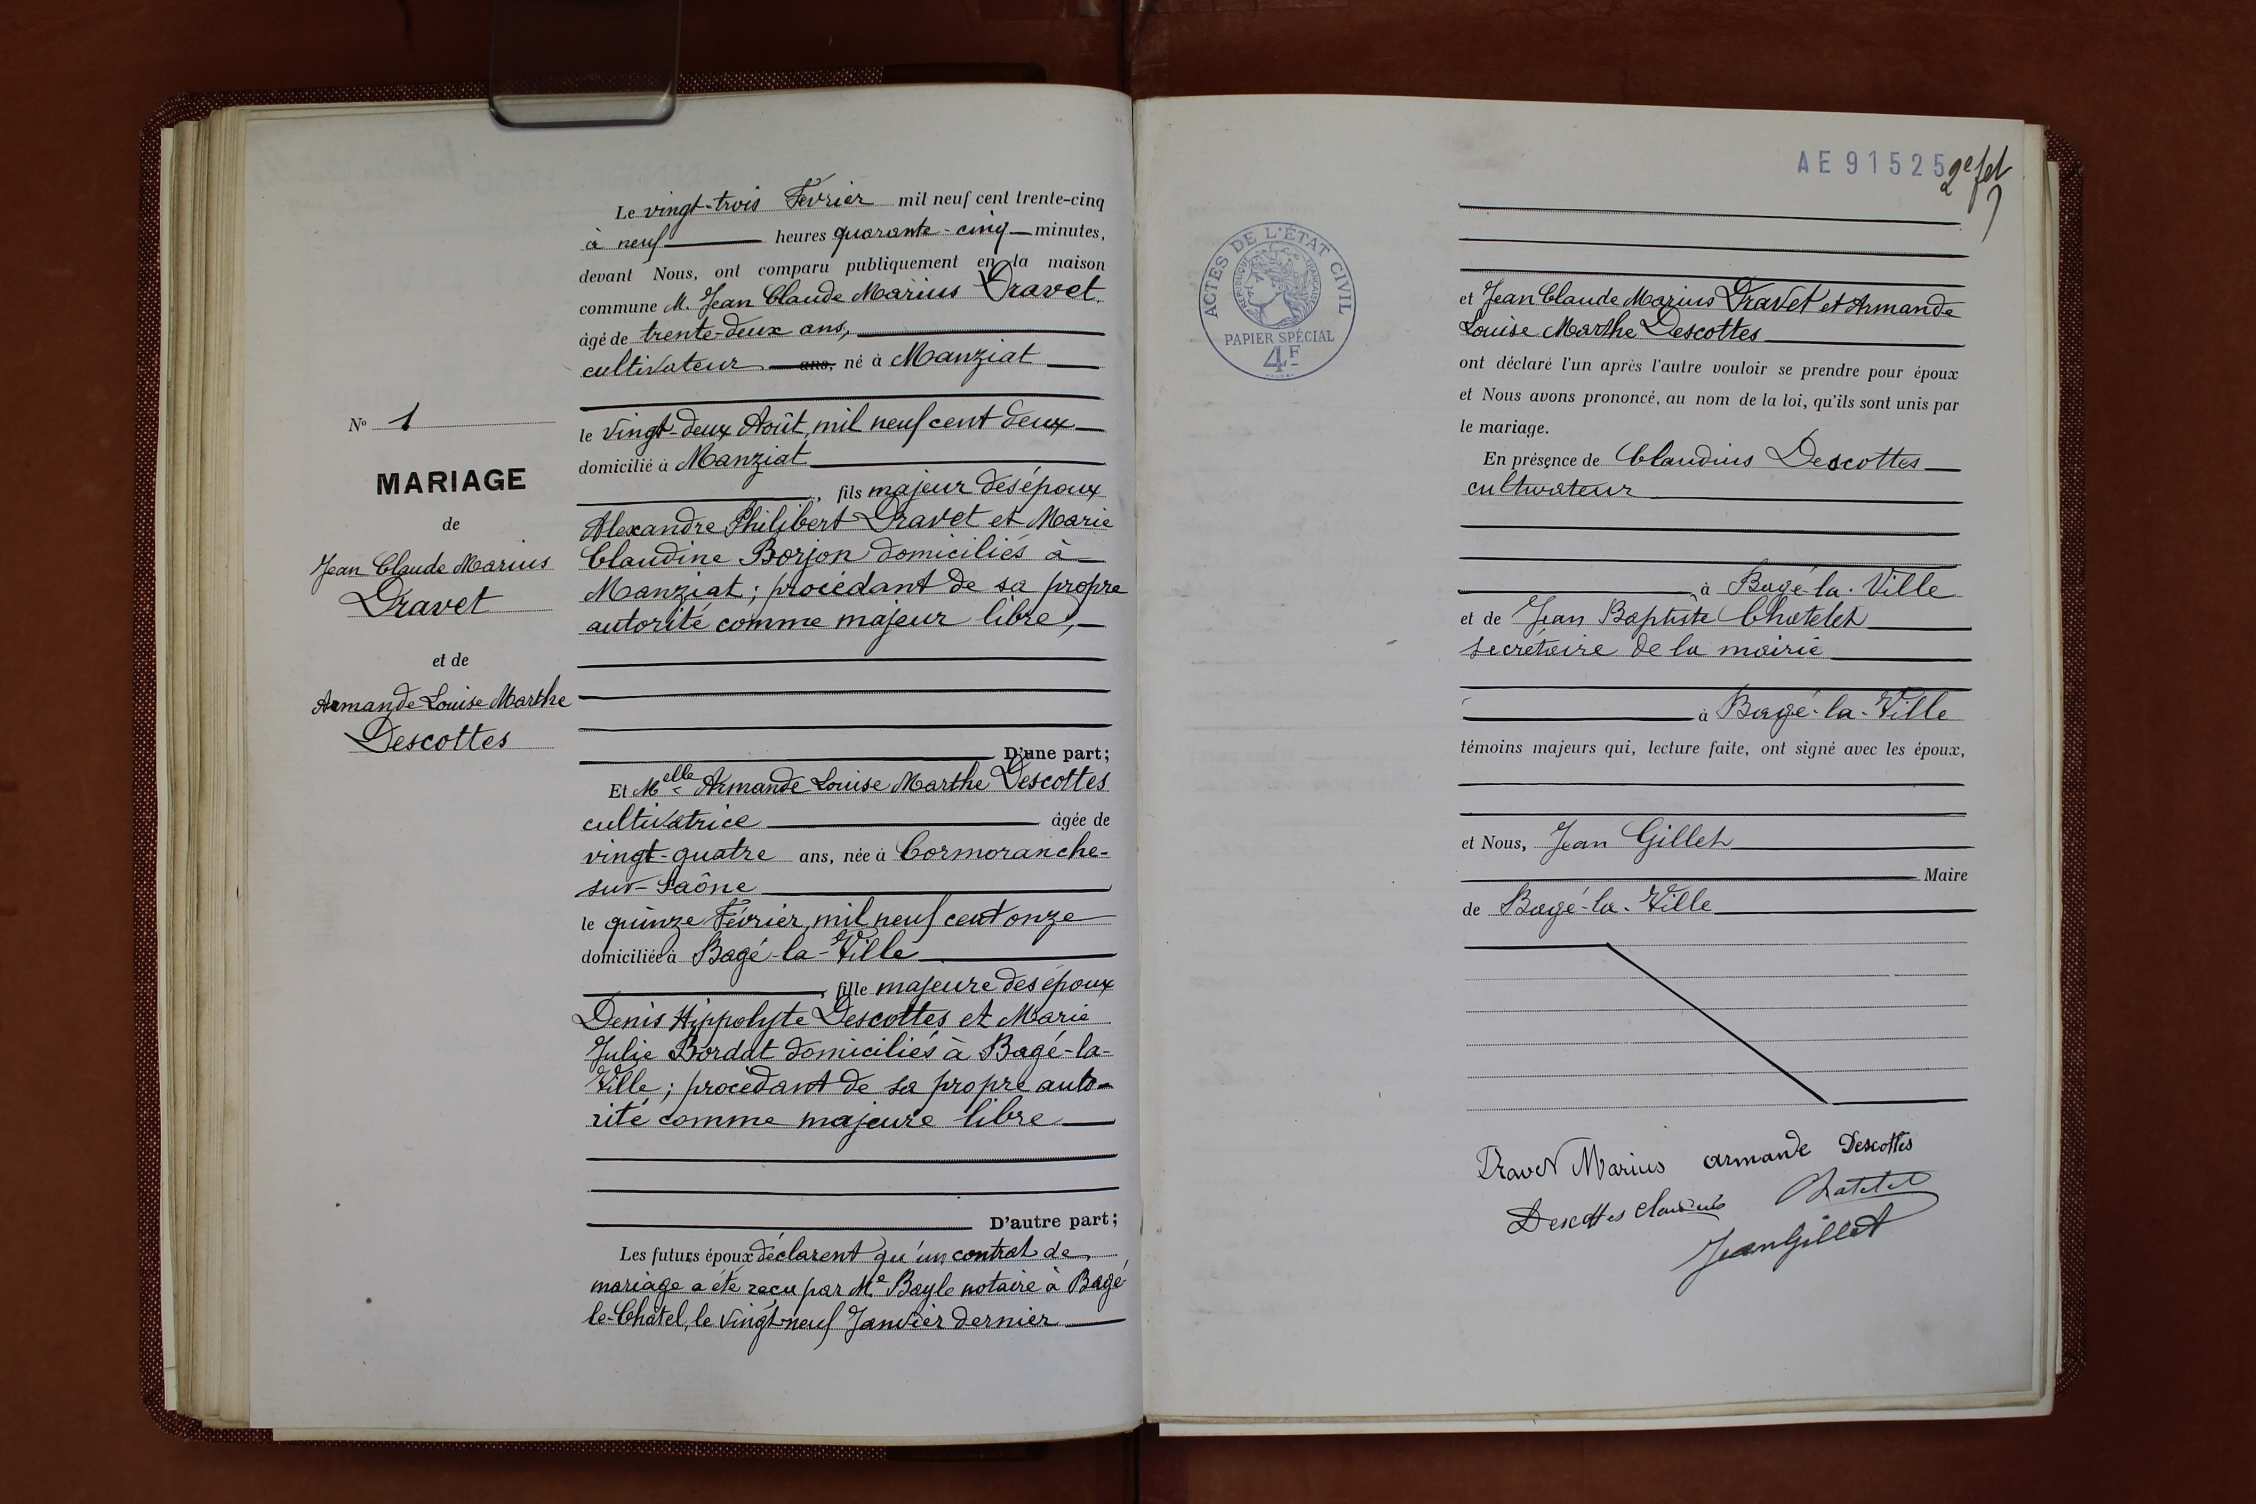 Le vingt-trois Février mil neuf cent trente-cinq
à neuf heures quarante-cinq minutes,
devant Nous, ont comparu publiquement en la maison
commune M. Jean Claude Marius Dravet,
âgé de trente-deux ans,
cultivateur ans, né à Manziat
le vingt-deux Août mil neuf cent deux
domicilié à Manziat
, fils majeur des époux
Alexandre Philibert Dravet et Marie
Claudine Borjon domiciliés à
Manziat ; procédant de sa propre
autorité comme majeur libre,
D'une part;
Et Melle Armande Louise Marthe Descottes
cultivatrice âgée de
vingt-quatre ans, née à Cormoranche-
sur-Saône
le quinze Février mil neuf cent onze
domiciliée à Bagé-la-Ville
, fille majeure des époux
Denis Hippolyte Descottes et Marie
Julie Bordat domiciliés à Bagé-la-
Ville ; procédant de sa propre auto-
rité comme majeure libre
D'autre part;
Les futurs époux déclarent qu'un contrat de
mariage a été reçu par Me Bayle notaire à Bagé
le-Châtel, le vingt-neuf Janvier dernier
No 1
MARIAGE
de
Jean Claude Marius
Dravet
et de
Armande Louise Marthe
Descottes
AE 91525
2e fet
ACTES DE L'ÉTAT CIVIL
RÉPUBLIQUE FRANÇAISE
PAPIER SPÉCIAL
4F
et Jean Claude Marius Dravet et Armande
Louise Marthe Descottes
ont déclaré l'un après l'autre vouloir se prendre pour époux
et Nous avons prononcé, au nom de la loi, qu'ils sont unis par
le mariage.
En présence de Claudius Descottes
cultivateur
à Bagé-la-Ville
et de Jean Baptiste Chatelet
secrétaire de la mairie
à Bagé-la-Ville
témoins majeurs qui, lecture faite, ont signé avec les époux,
et Nous, Jean Gillet
Maire
de Bagé-la-Ville
Dravet Marius armande Descottes
Descottes Claudius Chatelet
Jean Gillet